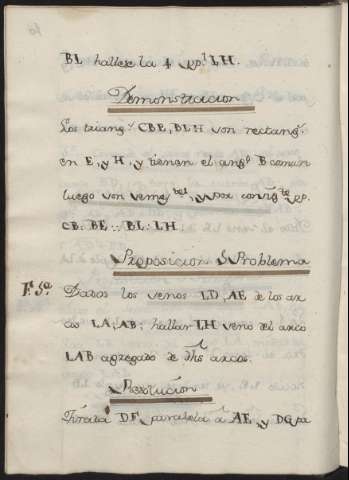 BL hallese la 4 pp.l LH.
Demonstracion
Los triang.s CBE, BLH son rectang.s
en E, y H, y tienen el ang.o B comun
luego son semej.tes, y por consig.te pp.
CB: BE:: BL: LH.
Proposicion 8 Problema
F. 5a Dados los senos LD, AE de los ar-
cos LA, AB; hallar LH seno del arco
LAB agregado de dhs arcos.
Resolucion
Tirala DF, paralela á AE, y DG pa